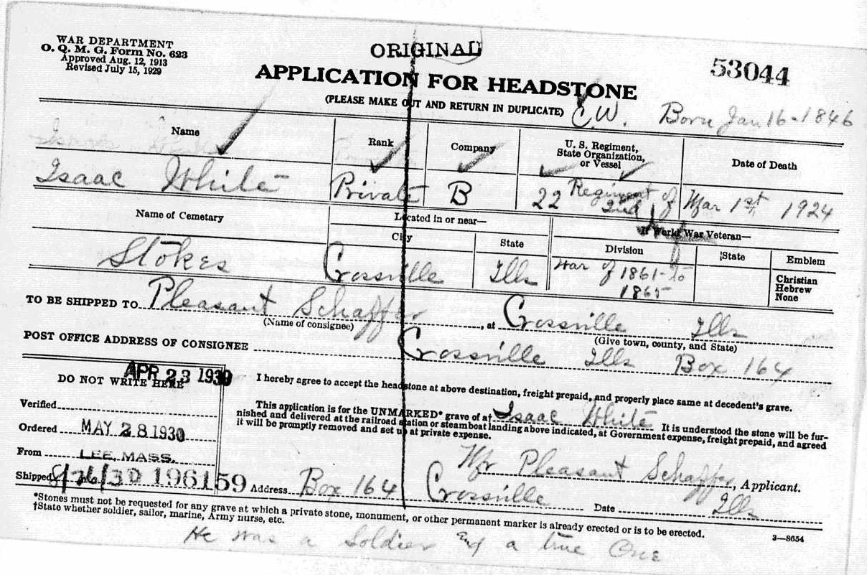 WAR DEPARTMENT
O. Q. M. G. Form No. 623
Approved Aug. 12, 1913
Revised July 15, 1929
ORIGINAL
53044
APPLICATION FOR HEADSTONE
(PLEASE MAKE OUT AND RETURN IN DUPLICATE)
C.W. Born Jan 16-1846
Name
Rank
Company
U. S. Regiment, State Organization, or Vessel
Date of Death
Isaac White
Private
B
22 Regiment of
2nd
Mar 1st 1924
Name of Cemetary
Located in or near—
City
State
If World War Veteran—
Division
State
Emblem
Stokes
Crossville
Ills
War of 1861-to
1865
Christian
Hebrew
None
TO BE SHIPPED TO Pleasant Schaffer, at Crossville Ills
(Name of consignee)
(Give town, county, and State)
POST OFFICE ADDRESS OF CONSIGNEE Crossville Ills Box 164
APR 23 1930
DO NOT WRITE HERE
I hereby agree to accept the headstone at above destination, freight prepaid, and properly place same at decedent's grave.
This application is for the UNMARKED* grave of a† Isaac White It is understood the stone will be fur-
nished and delivered at the railroad station or steamboat landing above indicated, at Government expense, freight prepaid, and agreed
it will be promptly removed and set up at private expense.
Verified
Ordered MAY 28 1930
From LEE, MASS.
Shipped 8/26/30 196159
Mr Pleasant Schaffer, Applicant.
Address Box 164 Crossville Date Ills
*Stones must not be requested for any grave at which a private stone, monument, or other permanent marker is already erected or is to be erected.
†State whether soldier, sailor, marine, Army nurse, etc.
3—8654
He was a Soldier and a true One